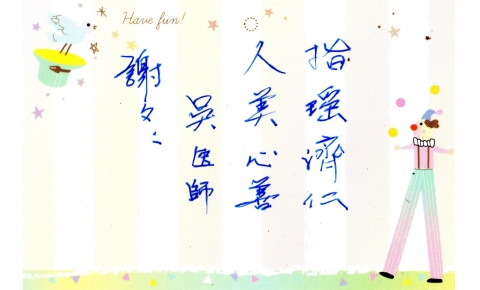 Have fun!
指瑶濟仁
人美心善
吳医師
謝